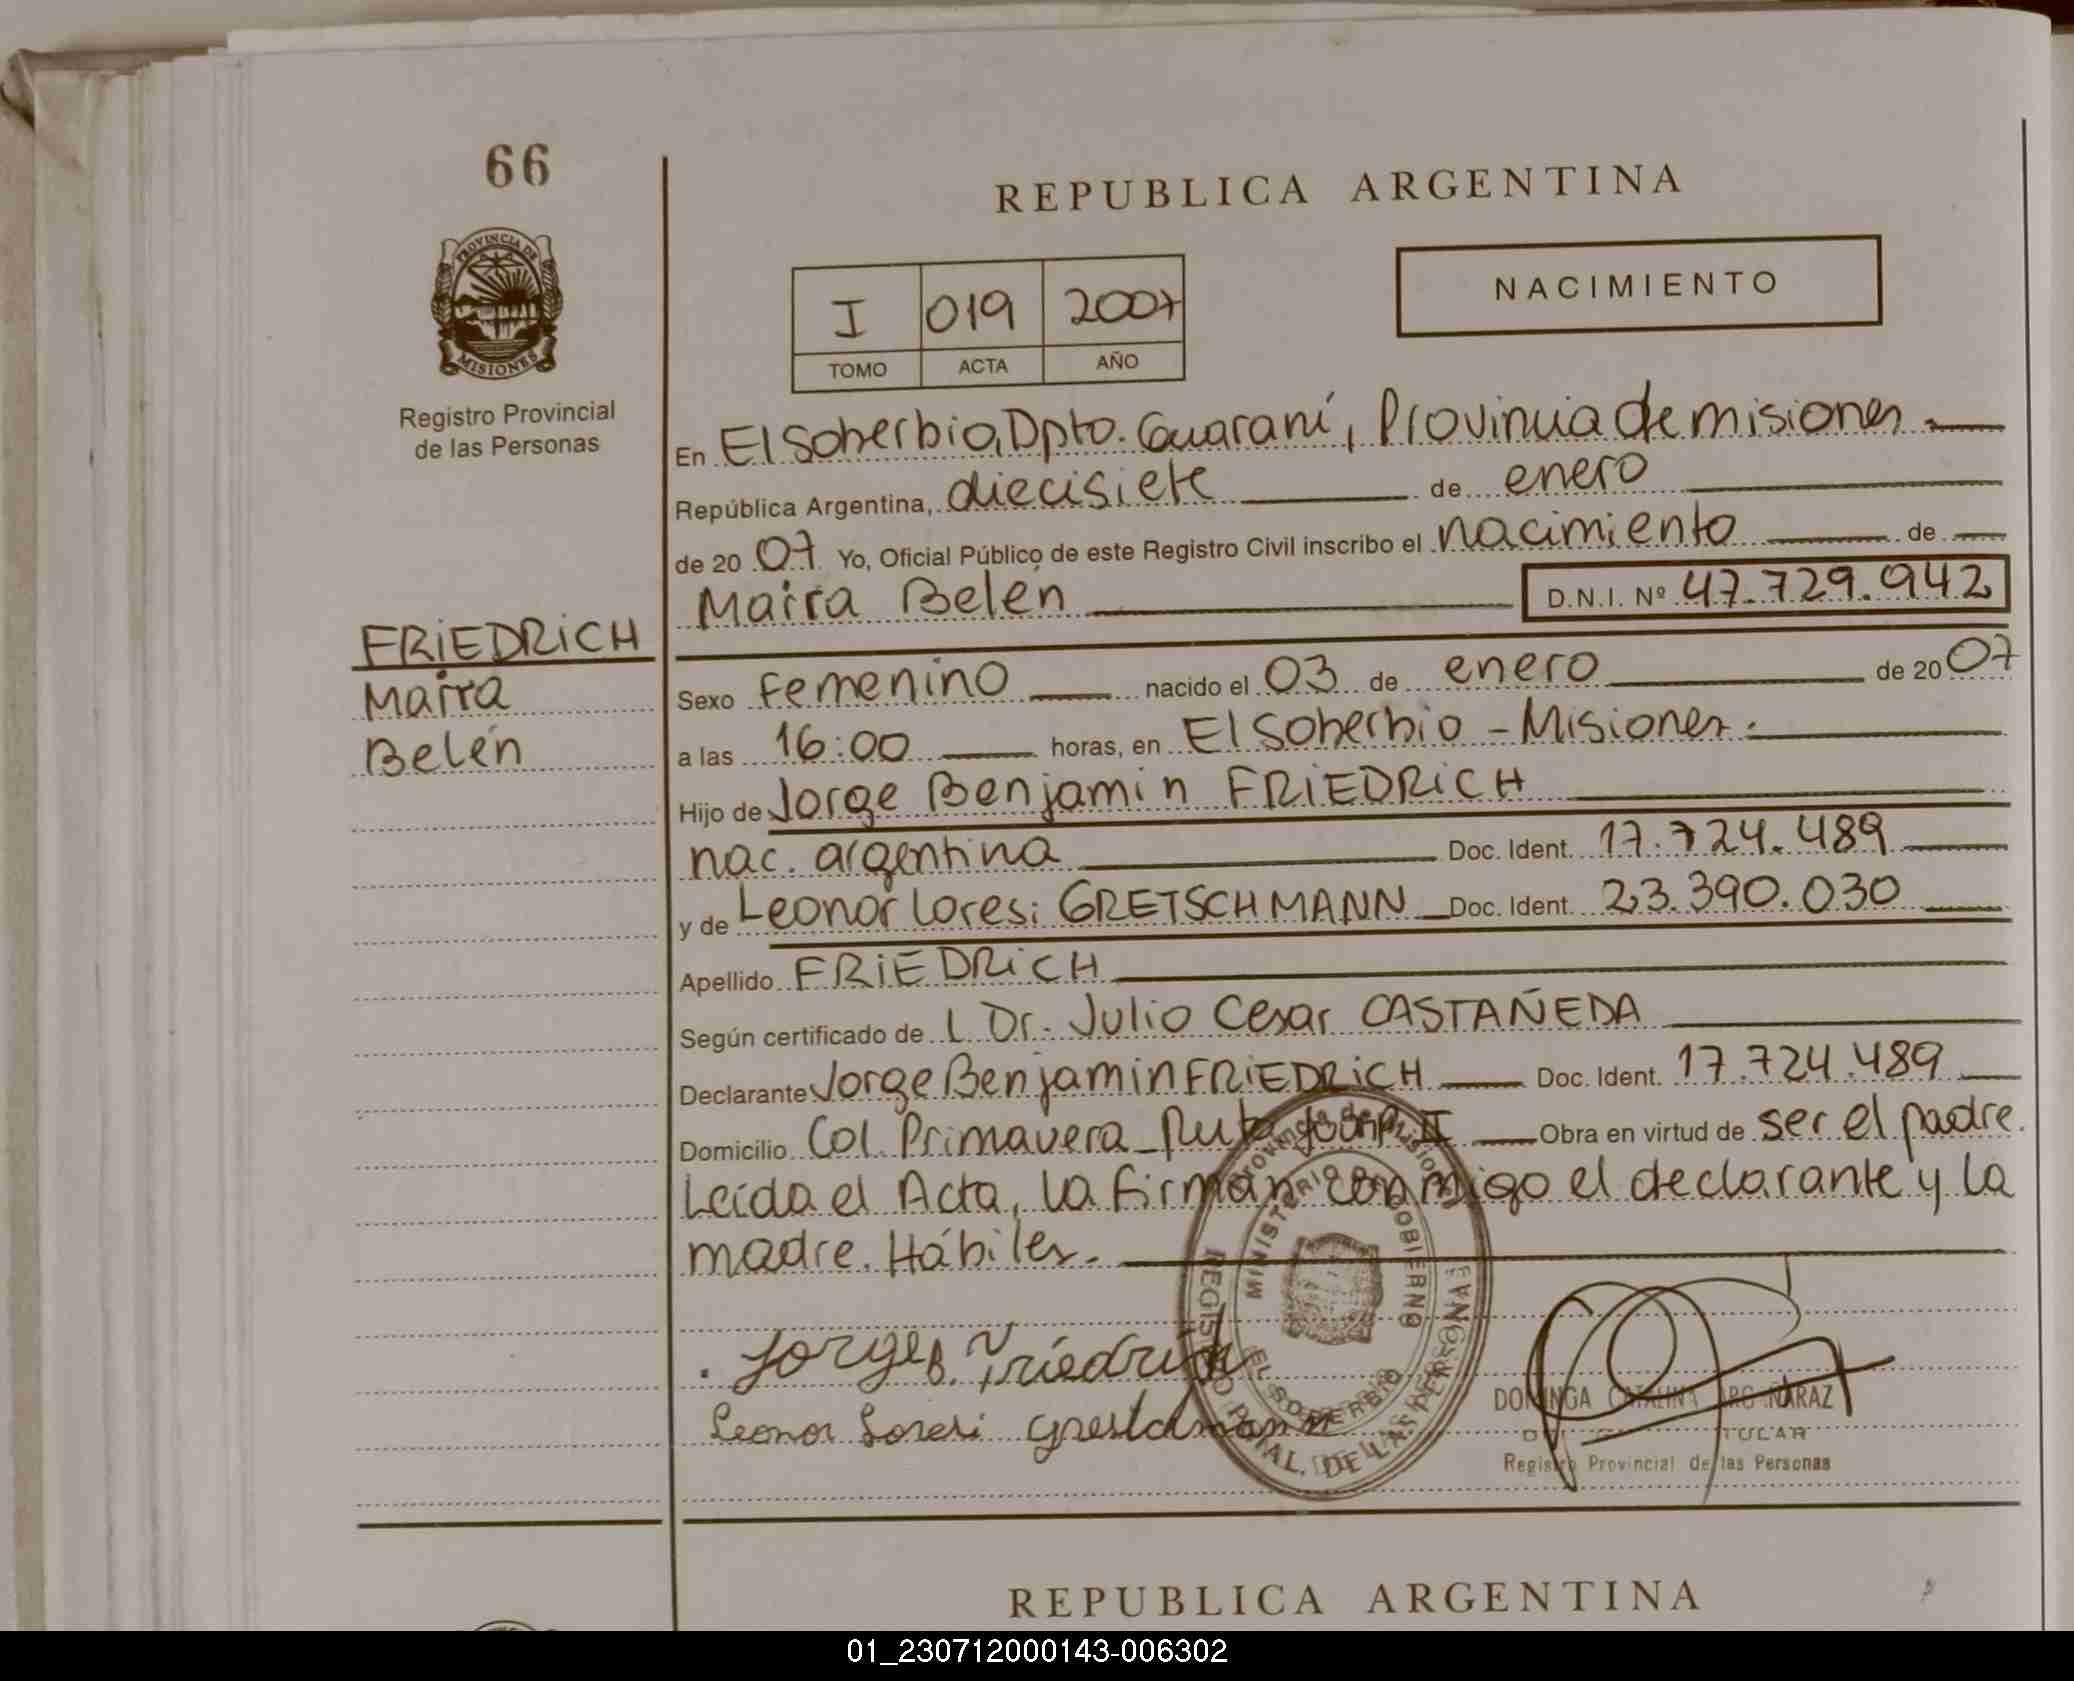 66
PROVINCIA DE
MISIONES
Registro Provincial
de las Personas
REPUBLICA ARGENTINA
NACIMIENTO
I 019 2007
TOMO ACTA AÑO
En El Soberbio, Dpto. Guaraní, Provincia de misiones.
República Argentina, diecisiete de enero
de 20 07 Yo, Oficial Público de este Registro Civil inscribo el nacimiento de
Maira Belén D.N.I. Nº 47.729.942
FRIEDRICH
Maira
Belén
Sexo Femenino nacido el 03 de enero de 20 07
a las 16:00 horas, en El Soberbio - Misiones.
Hijo de Jorge Benjamin FRIEDRICH
nac. argentina Doc. Ident. 17.724.489
y de Leonor Loresi GRETSCHMANN Doc. Ident. 23.390.030
Apellido FRIEDRICH
Según certificado de L Dr. Julio Cesar CASTAÑEDA
Declarante Jorge Benjamin FRIEDRICH Doc. Ident. 17.724.489
Domicilio Col. Primavera Ruta II Obra en virtud de ser el padre.
Leída el Acta, la firman conmigo el declarante y la
madre. Hábiles.
Jorge B. Friedrich
Leonor Loresi
Provincia de Misiones
MINISTERIO DE GOBIERNO
EL SOBERBIO
REGISTRO PCIAL. DE LAS PERSONAS
DOMINGA CATALINA ARGAÑARAZ
TULAR
Registro Provincial de las Personas
REPUBLICA ARGENTINA
01_230712000143-006302